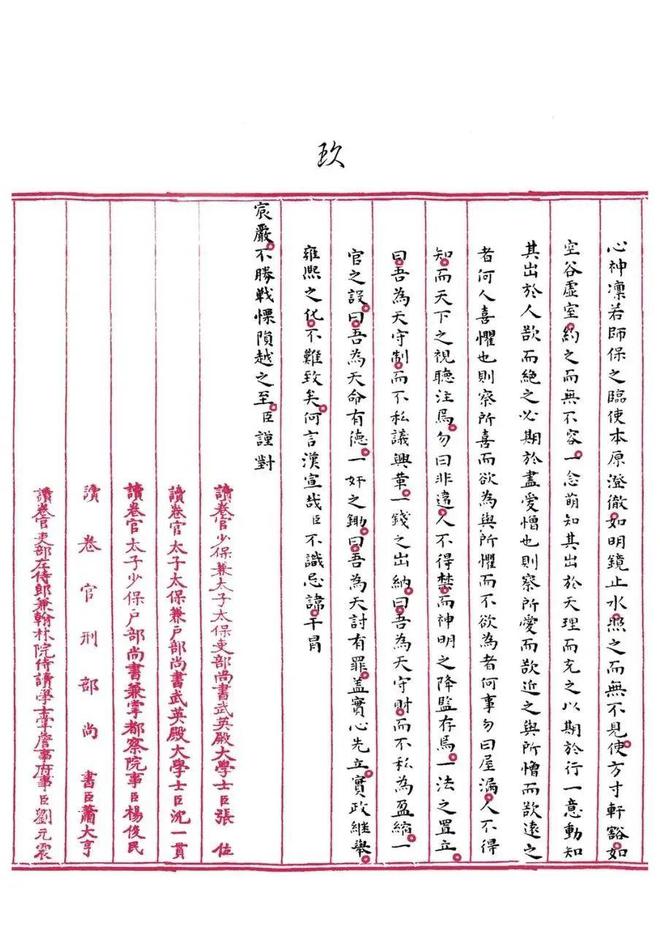 玖
心神凜若師保之臨使本原澄徹如明鏡止水照之而無不見使方寸軒豁如
空谷虛室約之而無不容一念萌知其出於天理而充之以期於行一意動知
其出於人欲而絕之必期於盡愛憎也則察所愛而欲近之與所憎而欲遠之
者何人喜懼也則察所喜而欲為與所懼而不欲為者何事勿曰屋漏人不得
知而天下之視聽注焉勿曰非違人不得禁而神明之降監存焉一法之置立
曰吾為天守制而不私議興革一錢之出納曰吾為天守財而不私為盈縮一
官之設曰吾為天命有德一奸之鋤曰吾為天討有罪蓋實心先立實政繼舉
雍熙之化不難致矣何言漢宣哉臣不識忌諱干冒
宸嚴不勝戰慄隕越之至臣謹對
讀卷官少保兼太子太保吏部尚書武英殿大學士臣張位
讀卷官太子太保兼戶部尚書武英殿大學士臣沈一貫
讀卷官太子少保戶部尚書兼掌都察院事臣楊俊民
讀卷官刑部尚書臣蕭大亨
讀卷官吏部左侍郎兼翰林院侍讀學士掌詹事府事臣劉元震